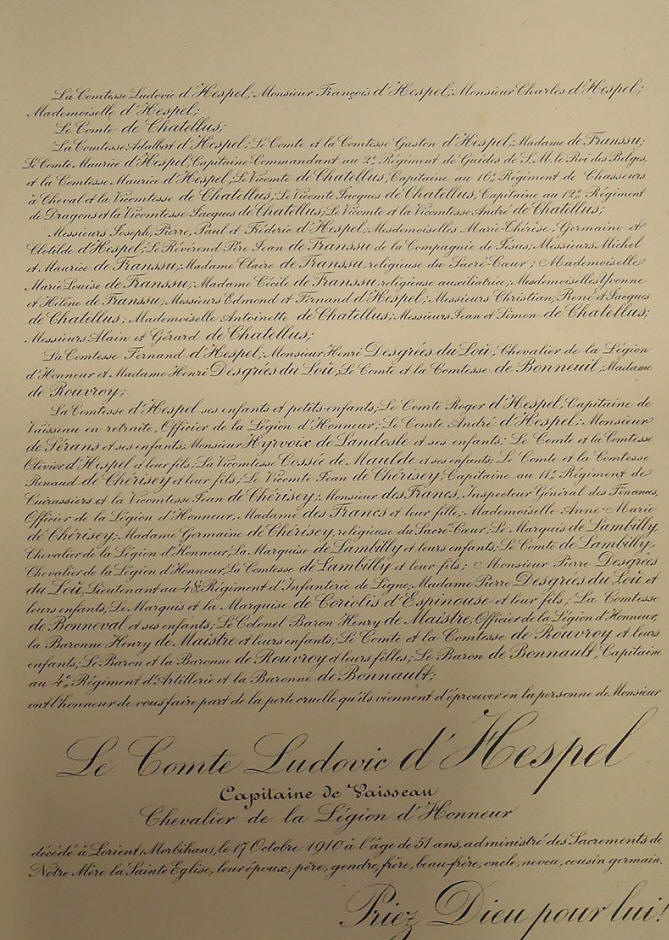 La Comtesse Ludovic d'Hespel; Monsieur François d'Hespel; Monsieur Charles d'Hespel;
Mademoiselle d'Hespel;
Le Comte de Chatellus;
La Comtesse Adalbert d'Hespel; Le Comte et la Comtesse Gaston d'Hespel; Madame de Franssu;
Le Comte Maurice d'Hespel, Capitaine Commandant au 2e Régiment de Guides de S.M. le Roi des Belges,
et la Comtesse Maurice d'Hespel; Le Vicomte de Chatellus, Capitaine au 16e Régiment de Chasseurs
à Cheval et la Vicomtesse de Chatellus; Le Vicomte Jacques de Chatellus, Capitaine au 12e Régiment
de Dragons et la Vicomtesse Jacques de Chatellus; Le Vicomte et la Vicomtesse André de Chatellus;
Messieurs Joseph, Pierre, Paul et Fréderic d'Hespel; Mesdemoiselles Marie-Thérèse, Germaine et
Clotilde d'Hespel; Le Révérend Père Jean de Franssu de la Compagnie de Jésus; Messieurs Michel
et Maurice de Franssu; Madame Claire de Franssu, religieuse du Sacré-Cœur; Mademoiselle
Marie Louise de Franssu; Madame Cécile de Franssu, religieuse auxiliatrice; Mesdemoiselles Yvonne
et Hélène de Franssu; Messieurs Edmond et Fernand d'Hespel; Messieurs Christian, René et Jacques
de Chatellus; Mademoiselle Antoinette de Chatellus; Messieurs Jean et Simon de Chatellus;
Messieurs Alain et Gérard de Chatellus;
La Comtesse Fernand d'Hespel; Monsieur Henri Desgrées du Loû, Chevalier de la Légion
d'Honneur et Madame Henri Desgrées du Loû; Le Comte et la Comtesse de Bonneuil; Madame
de Rouvroy;
La Comtesse d'Hespel ses enfants et petits-enfants; Le Comte Roger d'Hespel, Capitaine de
Vaisseau en retraite, Officier de la Légion d'Honneur; Le Comte André d'Hespel; Monsieur
de Sérans et ses enfants; Monsieur Hyrvoix de Landosle et ses enfants; Le Comte et la Comtesse
Olivier d'Hespel et leur fils; La Vicomtesse Cossée de Maulde et ses enfants; Le Comte et la Comtesse
Renaud de Chérisey et leur fils; Le Vicomte Jean de Chérisey, Capitaine au 11e Régiment de
Cuirassiers et la Vicomtesse Jean de Chérisey; Monsieur des Francs, Inspecteur Général des Finances,
Officier de la Légion d'Honneur, Madame des Francs et leur fille; Mademoiselle Anne-Marie
de Chérisey; Madame Germaine de Chérisey, religieuse du Sacré-Cœur; Le Marquis de Lambilly,
Chevalier de la Légion d'Honneur, La Marquise de Lambilly et leurs enfants; Le Comte de Lambilly,
Chevalier de la Légion d'Honneur, La Comtesse de Lambilly et leur fils; Monsieur Pierre Desgrées
du Loû, Lieutenant au 48e Régiment d'Infanterie de Ligne, Madame Pierre Desgrées du Loû et
leurs enfants; Le Marquis et la Marquise de Coriolis d'Espinouse et leur fils; La Comtesse
de Bonneval et ses enfants; Le Colonel Baron Henry de Maistre, Officier de la Légion d'Honneur,
la Baronne Henry de Maistre et leurs enfants; Le Comte et la Comtesse de Rouvroy et leurs
enfants; Le Baron et la Baronne de Rouvroy et leurs filles; Le Baron de Bonnault, Capitaine
au 4e Régiment d'Artillerie et la Baronne de Bonnault;
ont l'honneur de vous faire part de la perte cruelle qu'ils viennent d'éprouver en la personne de Monsieur
Le Comte Ludovic d'Hespel
Capitaine de Vaisseau
Chevalier de la Légion d'Honneur
décédé à Lorient, Morbihan, le 17 Octobre 1910 à l'âge de 51 ans, administré des Sacrements de
Notre Mère la Sainte Eglise, leur époux, père, gendre, frère, beau-frère, oncle, neveu, cousin germain.
Priez Dieu pour lui!